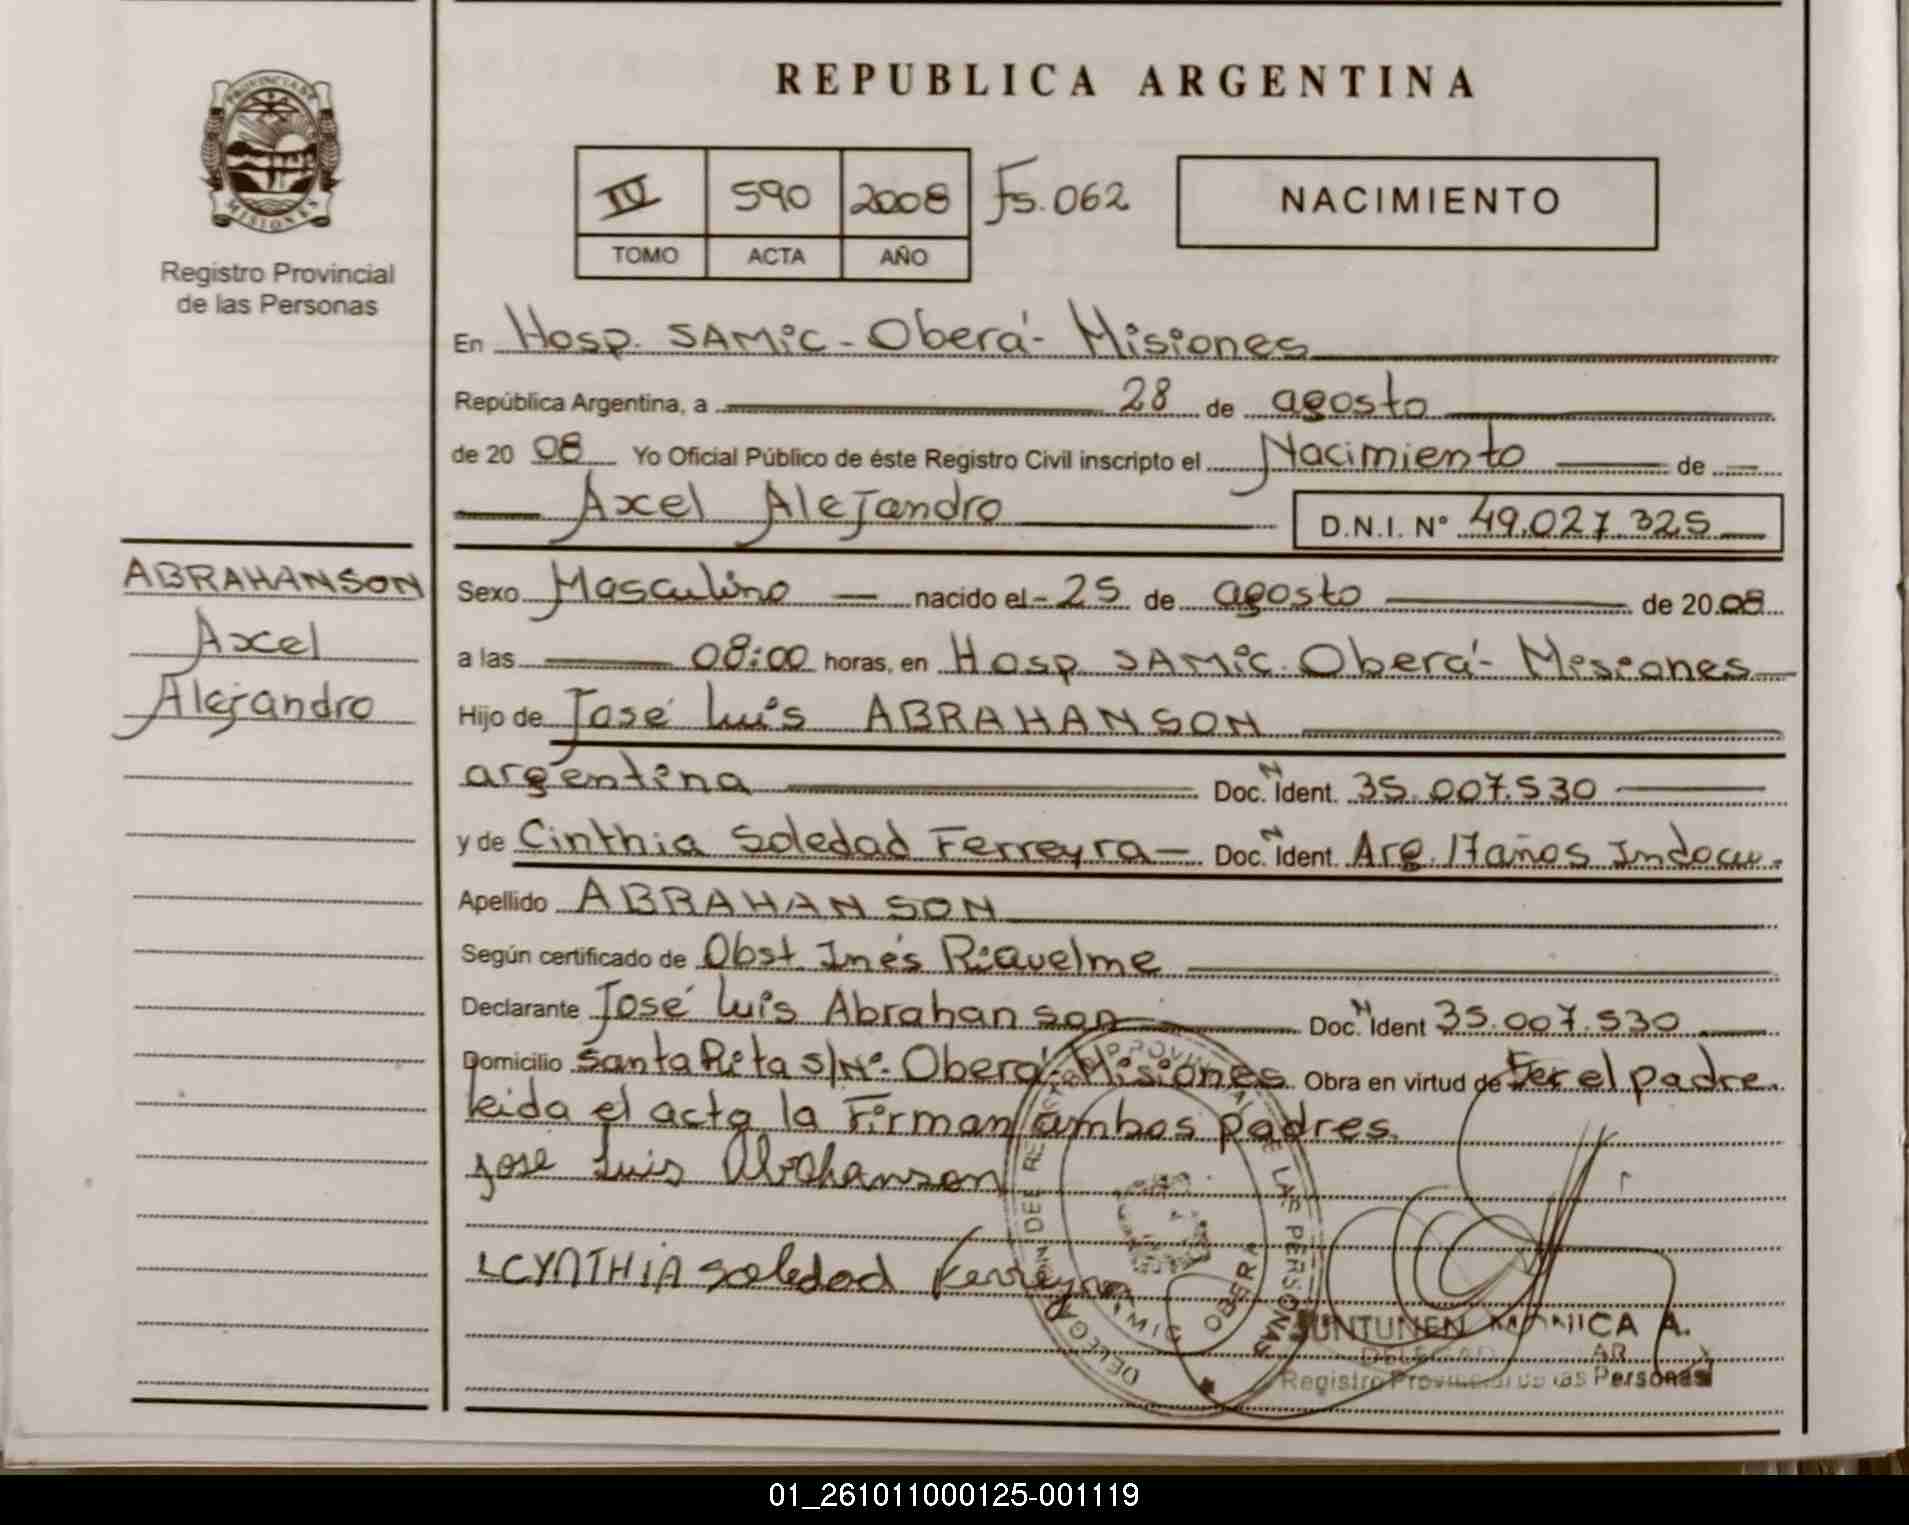 PROVINCIA DE
MISIONES
Registro Provincial
de las Personas
ABRAHANSON
Axel
Alejandro
REPUBLICA ARGENTINA
IV 590 2008 Fs. 062
TOMO ACTA AÑO
NACIMIENTO
En Hosp. SAMIC - Oberá - Misiones
República Argentina, a 28 de agosto
de 20 08 Yo Oficial Público de éste Registro Civil inscripto el Nacimiento de
Axel Alejandro D.N.I. N° 49.027.325
Sexo Masculino nacido el - 25 de agosto de 20 08
a las 08:00 horas, en Hosp SAMIC. Oberá - Misiones
Hijo de José Luis ABRAHANSON
argentina Doc. N Ident. 35.007.530
y de Cinthia Soledad Ferreyra - Doc. N Ident. Arg. 17 años Indocu.
Apellido ABRAHANSON
Según certificado de Obst. Inés Riquelme
Declarante José Luis Abrahanson Doc. N Ident 35.007.530
Domicilio Santa Rita S/Nº - Oberá - Misiones Obra en virtud de ser el padre.
leida el acta la Firman ambos padres.
Jose Luis Abrahanson
CYNTHIA Soledad Ferreyra
DELEGACION DE REGISTRO PROVINCIAL DE LAS PERSONAS
OBERA
MONICA A.
Registro Provincial de las Personas
01_261011000125-001119